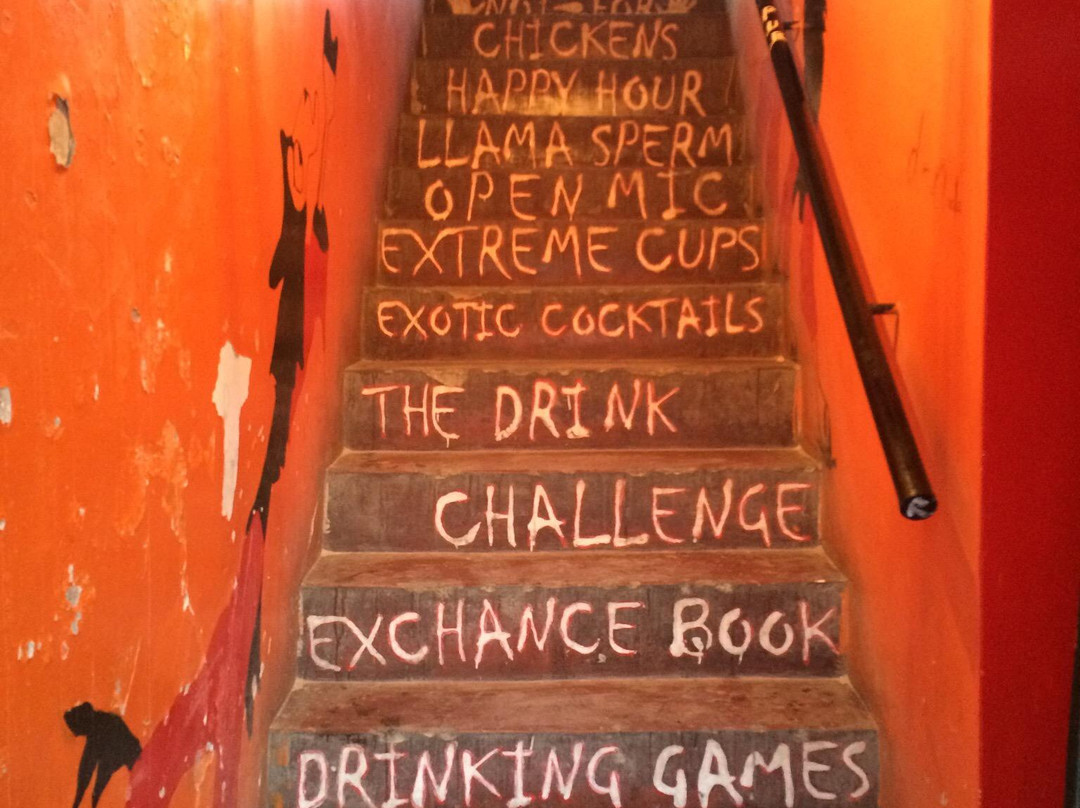 CHICKENS
HAPPY HOUR
LLAMA SPERM
OPEN MIC
EXTREME CUPS
EXOTIC COCKTAILS
THE DRINK
CHALLENGE
EXCHANCE BOOK
DRINKING GAMES